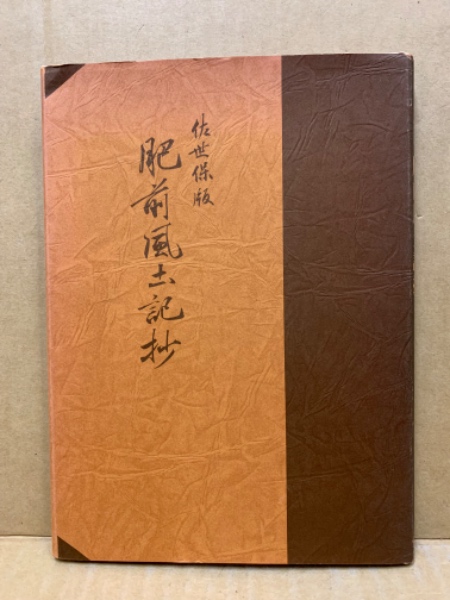 佐世保版
肥前風土記抄